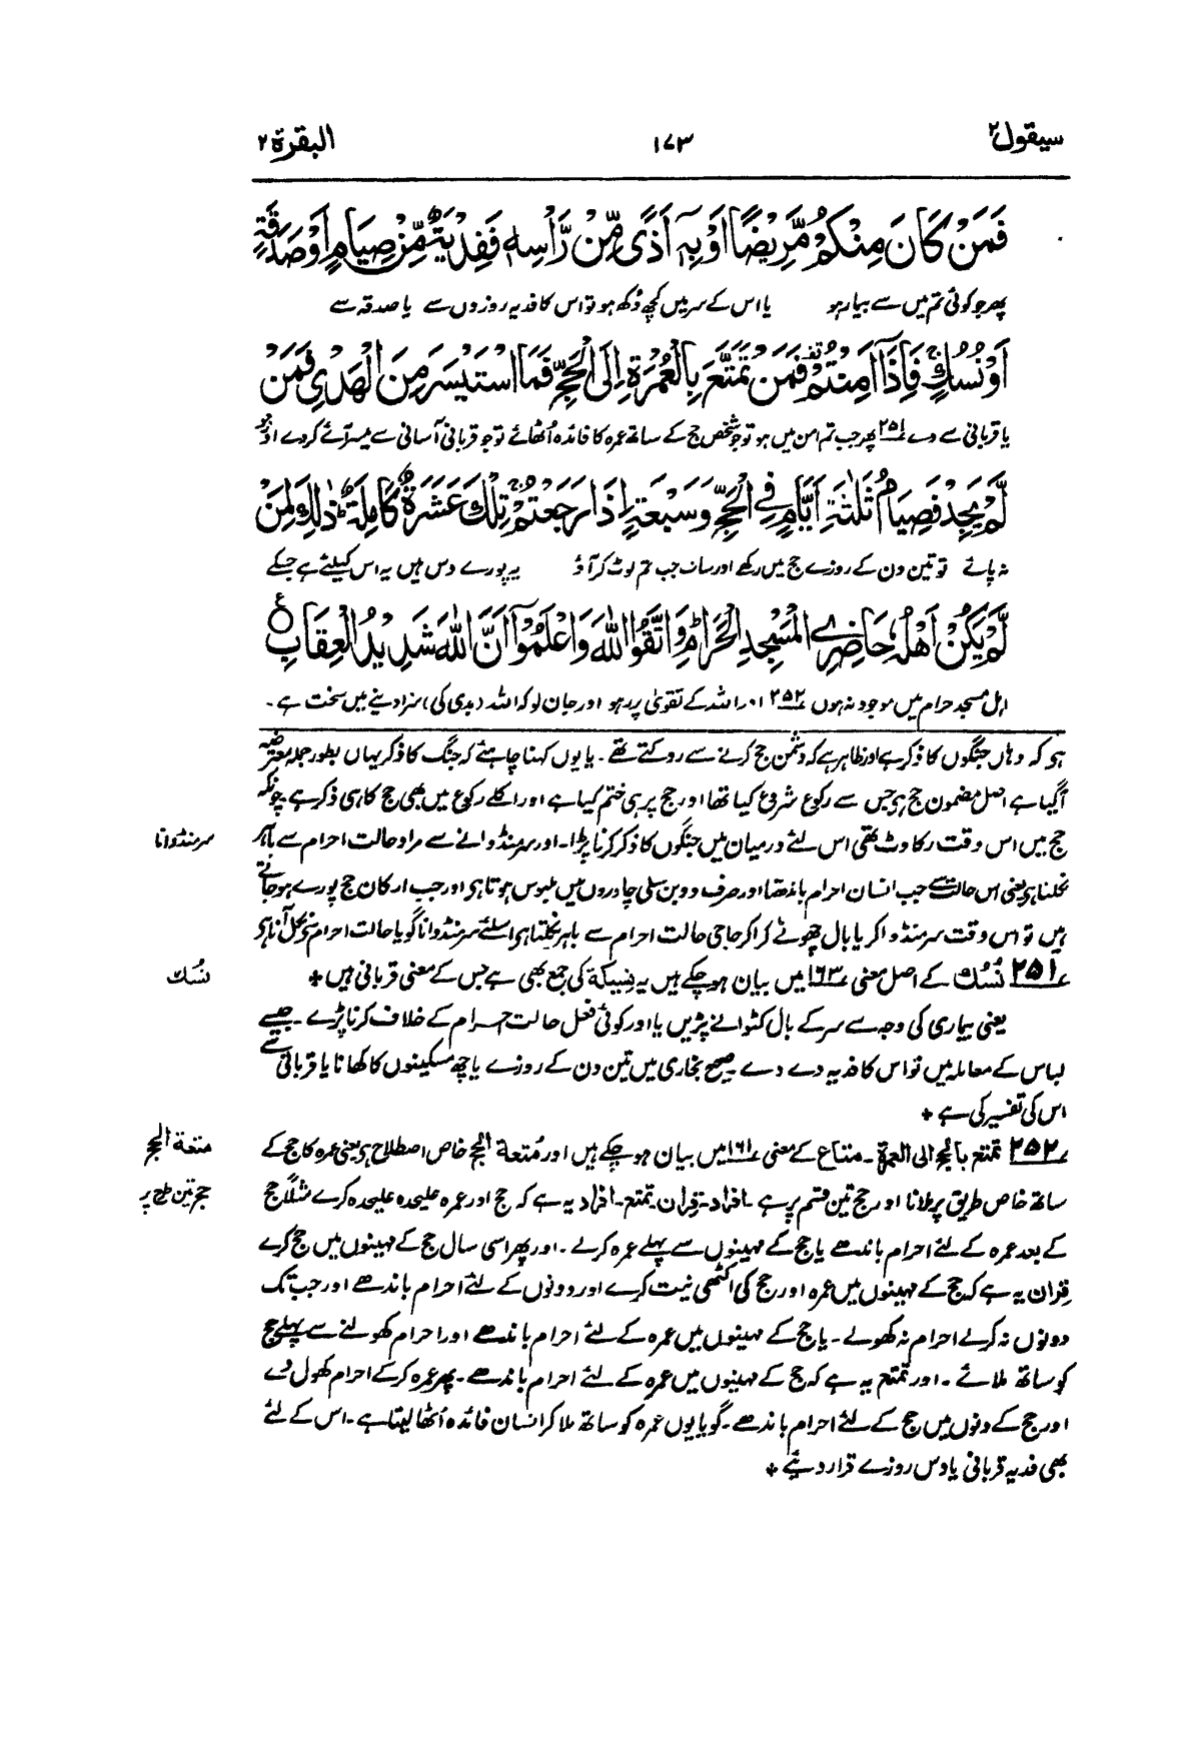 سیقول ۲ ۱۷۳ البقرة ۲
فَمَنْ كَانَ مِنْكُمْ مَّرِيْضًا اَوْ بِهٖۤ اَذًى مِّنْ رَّاْسِهٖ فَفِدْيَةٌ مِّنْ صِيَامٍ اَوْ صَدَقَةٍ
پھر جو کوئی تم میں سے بیمار ہو یا اس کے سر میں کچھ دُکھ ہو تو اس کا فدیہ روزوں سے یا صدقہ سے
اَوْ نُسُكٍ ۚ فَاِذَاۤ اَمِنْتُمْ ۥ فَمَنْ تَمَتَّعَ بِالْعُمْرَةِ اِلَى الْحَجِّ فَمَا اسْتَيْسَرَ مِنَ الْهَدْيِ ۚ فَمَنْ
یا قربانی سے دے ۲۵۱؎ پھر جب تم امن میں ہو تو جو شخص حج کے ساتھ عمرہ کا فائدہ اُٹھائے تو جو قربانی آسانی سے میسر آئے کر دے اور جو
لَّمْ يَجِدْ فَصِيَامُ ثَلٰثَةِ اَيَّامٍ فِي الْحَجِّ وَ سَبْعَةٍ اِذَا رَجَعْتُمْ ؕ تِلْكَ عَشَرَةٌ كَامِلَةٌ ؕ ذٰلِكَ لِمَنْ
نہ پائے تو تین دن کے روزے حج میں رکھے اور سات جب تم لوٹ کر آؤ یہ پورے دس ہیں یہ اس کیلئے ہے جسکے
لَّمْ يَكُنْ اَهْلُهٗ حَاضِرِي الْمَسْجِدِ الْحَرَامِ ؕ وَ اتَّقُوا اللّٰهَ وَ اعْلَمُوْۤا اَنَّ اللّٰهَ شَدِيْدُ الْعِقَابِ ع
اہل مسجد حرام میں موجود نہ ہوں ۲۵۲؎ اور اللہ کے تقویٰ پر رہو اور جان لو کہ اللہ (بدی کی) سزا دینے میں سخت ہے۔
ہو کہ وہاں جنگوں کا ذکر ہے اور ظاہر ہے کہ دشمن حج کرنے سے روکتے تھے۔ یا یوں کہنا چاہئے کہ جنگ کا ذکر یہاں بطور جملہ معترضہ
آگیا ہے اصل مضمون حج ہی جس سے رکوع شروع کیا تھا اور حج پر ہی ختم کیا ہے اور اگلے رکوع میں بھی حج کا ہی ذکر ہے چونکہ
حج میں اس وقت رکاوٹ تھی اس لئے درمیان میں جنگوں کا ذکر کرنا پڑا۔ اور سر منڈوانے سے مراد حالت احرام سے باہر سر منڈوانا
نکلنا ہی یعنی اس حالت سے جب انسان احرام باندھتا اور صرف دو بن سلی چادروں میں ملبوس ہوتا ہی اور جب ارکان حج پورے ہو جاتے
ہیں تو اس وقت سر منڈوا کر یا بال چھوٹے کرا کر حاجی حالت احرام سے باہر نکلتا ہی اسلئے سر منڈوانا گویا حالت احرام سے نکل آنا ہی
۲۵۱؎ نُسُک کے اصل معنی ۱۶۳؎ میں بیان ہو چکے ہیں یہ نسیکة کی جمع بھی ہے جس کے معنی قربانی ہیں ٭ نُسُک
یعنی بیماری کی وجہ سے سر کے بال کٹوانے پڑیں یا اور کوئی فعل حالت احرام کے خلاف کرنا پڑے۔ جیسے
لباس کے معاملہ میں تو اس کا فدیہ دے دے صحیح بخاری میں تین دن کے روزے یا چھ مسکینوں کا کھانا یا قربانی سے
اس کی تفسیر کی ہے ٭
۲۵۲؎ تمتع بالحج الی العمرة۔ متاع کے معنی ۱۶۱؎ میں بیان ہو چکے ہیں اور مُتعة الحج خاص اصطلاح ہی یعنی عمرہ کا حج کے متعة الحج
ساتھ خاص طریق پر ملانا اور حج تین قسم پر ہے۔ افراد۔ قِران۔ تمتع۔ افراد یہ ہے کہ حج اور عمرہ علیحدہ علیحدہ کرے مثلاً حج حج تین طرح پر
کے بعد عمرہ کے لئے احرام باندھے یا حج کے مہینوں سے پہلے عمرہ کرلے۔ اور پھر اسی سال حج کے مہینوں میں حج کرے
قِران یہ ہے کہ حج کے مہینوں میں عمرہ اور حج کی اکٹھی نیت کرے اور دونوں کے لئے احرام باندھے اور جب تک
دونوں نہ کرلے احرام نہ کھولے۔ یا حج کے مہینوں میں عمرہ کے لئے احرام باندھے اور احرام کھولنے سے پہلے حج
کو ساتھ ملائے۔ اور تمتع یہ ہے کہ حج کے مہینوں میں عمرہ کے لئے احرام باندھے۔ پھر عمرہ کرکے احرام کھول دے
اور حج کے دنوں میں حج کے لئے احرام باندھے۔ گویا یوں عمرہ کو ساتھ ملا کر انسان فائدہ اُٹھا لیتا ہے۔ اس کے لئے
بھی فدیہ قربانی یا دس روزے قرار دیئے ٭